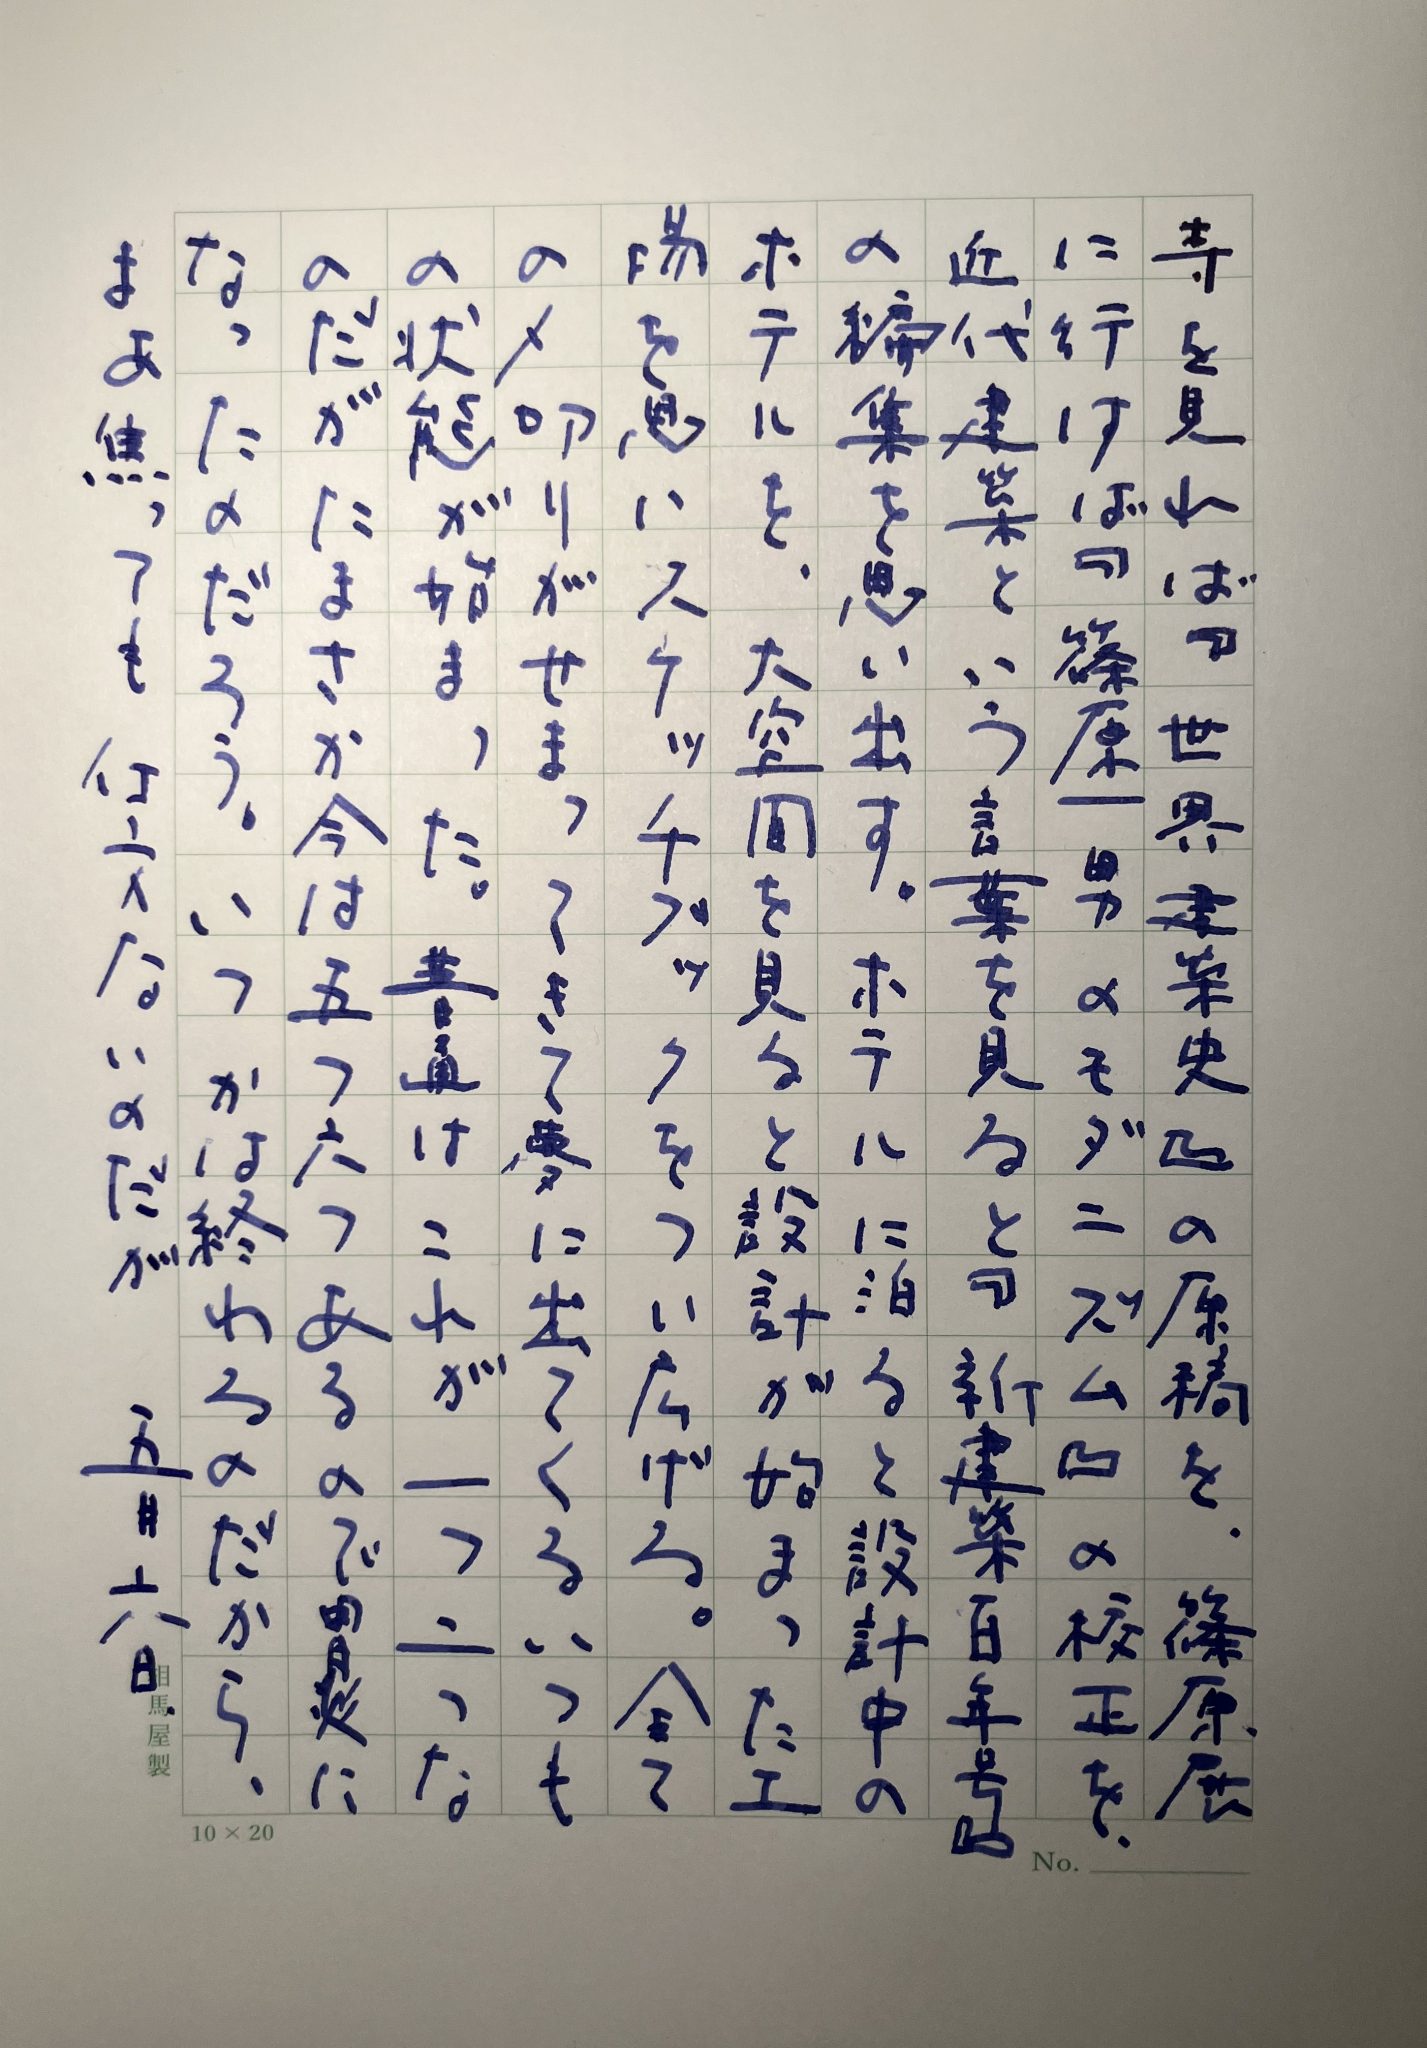 寺を見れば『世界建築史』の原稿を、篠原展
に行けば『篠原一男のモダニズム』の校正を、
近代建築という言葉を見ると『新建築百年号』
の編集を思い出す。ホテルに泊ると設計中の
ホテルを、大空間を見ると設計が始まった工
場を思いスケッチブックをつい広げる。全て
の〆切りがせまってきて夢に出てくるいつも
の状態が始まった。普通はこれが一つ二つな
のだがたまさか今は五つ六つあるので胃炎に
なったのだろう。いつかは終わるのだから、
まあ焦っても仕方ないのだが　五月六日
相馬屋製
10×20
No.